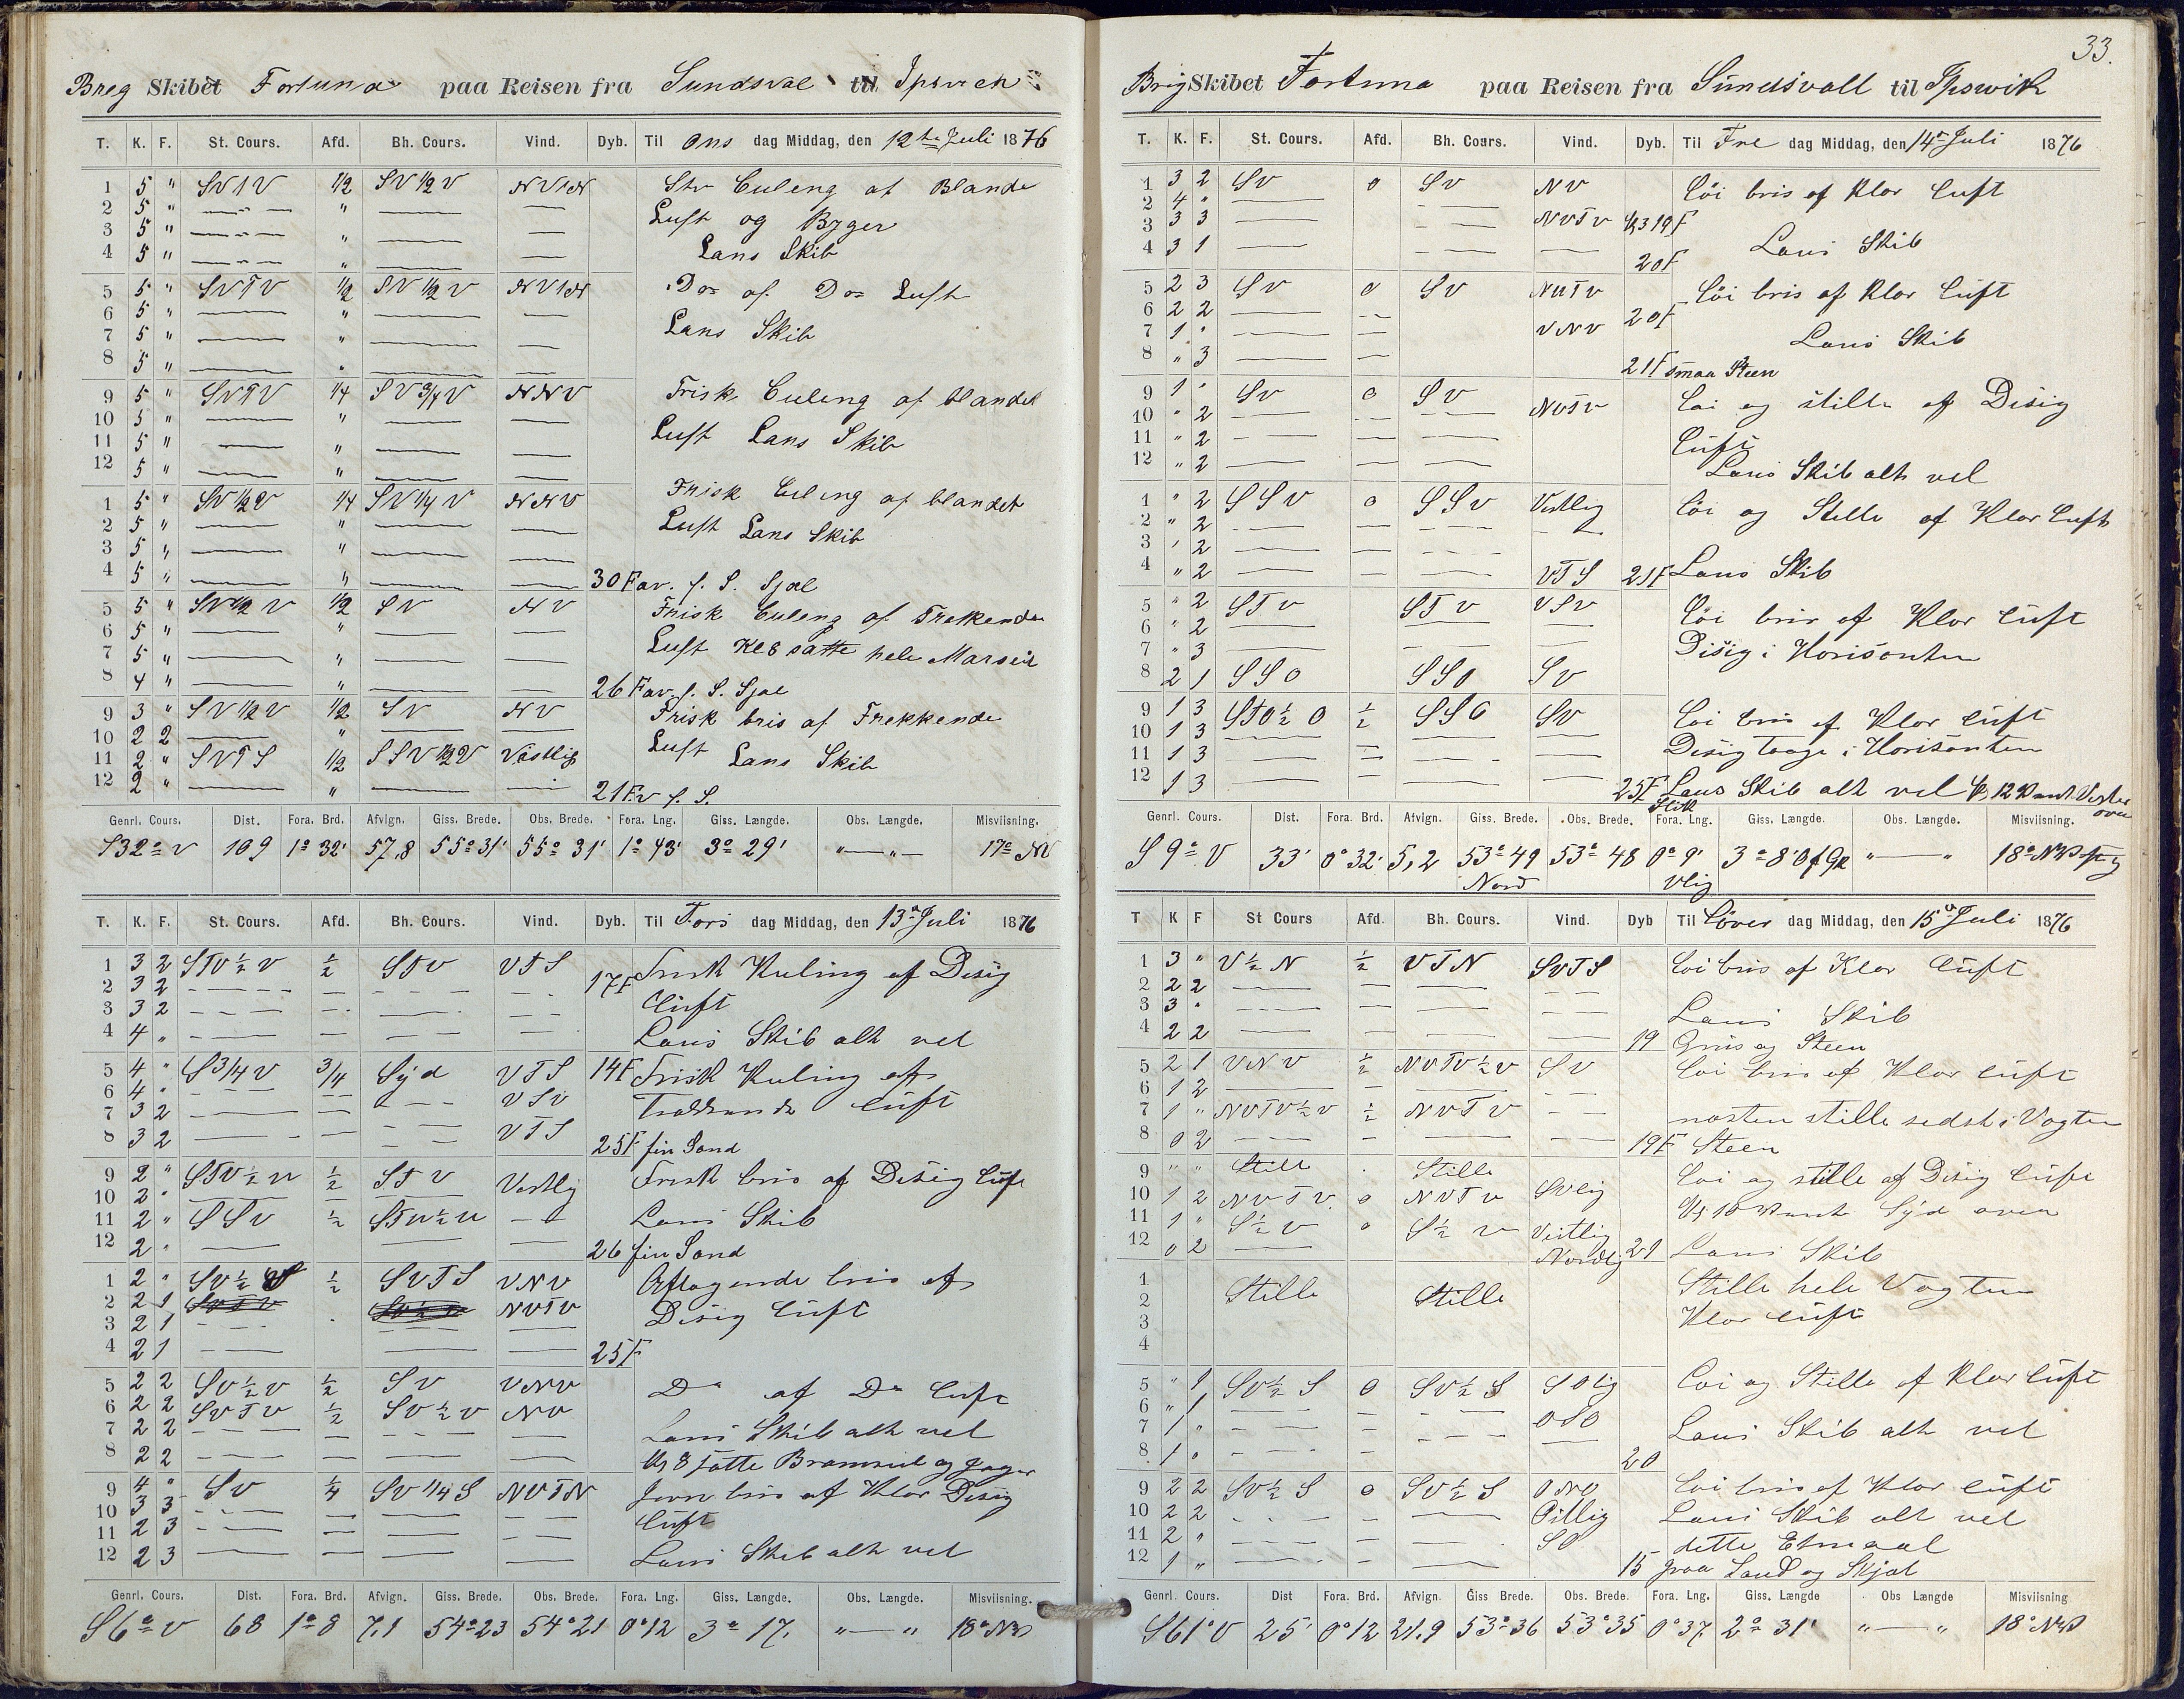 Breg Skibet Fortuna paa Reisen fra Sundsval til Ipsvich
T. K. F. St. Cours. Afd. Bh. Cours. Vind. Dyb. Til Ons dag Middag, den 12te Juli 1876
1 5 " SV1V 1/2 SV 1/2 V NV1N Stv Culeng af Blande
2 5 " — " — — Luft og Byger
3 5 " — " — — Lans Skib
4 5 " — " — —
5 5 " SVTV 1/2 SV 1/2 V NV1N Do= af Do= Luft
6 5 " — " — —
7 5 " — " — — Lans Skib
8 5 " — " — —
9 5 " SVTV 1/4 SV 3/4 V NNV Frisk Culeng af blandet
10 5 " — " — — Luft Lans Skib
11 5 " — " — —
12 5 " — " — —
1 5 " SV 1/2 V 1/4 SV 1/4 V NNV Frisk Culeng af blandet
2 5 " — " — — Luft Lans Skib
3 5 " — " — —
4 5 " — " — — 30 Fav. f. S. Sjæl
5 5 " SV 1/2 V 1/2 SV NV Frisk Culeng af Trekkende
6 5 " — " — — Luft Kl 8 satte hele Marseil
7 5 " — " — —
8 4 " — " — — 26 Fav. f. S. Sjæl
9 3 " SV 1/2 V 1/2 SV NV Frisk bris af Trekkende
10 2 2 — " — — Luft Lans Skib
11 2 " SVTS 1/2 SSV 1/2 V Västlig
12 2 " — " — — 21 Fv f. S.
Genrl. Cours. Dist. Fora. Brd. Afvign. Giss. Brede. Obs. Brede. Fora. Lng. Giss. Længde. Obs. Længde. Misviisning.
S 32° V 109 1° 32' 57,8 55° 31' 55° 31' 1° 43' 3° 29' " — " 17° NV
T. K. F. St. Cours. Afd. Bh. Cours. Vind. Dyb. Til Tors dag Middag, den 13de Juli 1876
1 3 2 STV 1/2 V 1/2 STV VTS 17F Frisk Kuling af Disig
2 3 2 — — — — Luft
3 3 2 — — — —
4 4 " — — — — Lans Skib alt vel
5 4 " S 3/4 V 3/4 Syd VTS 14F Frisk Kuling af
6 4 " — — — VSV Trækkende Luft
7 3 2 — — — —
8 3 2 — — — VTS 25F fin Sand
9 2 " STV 1/2 V 1/2 STV Vestlig Frisk bris af Disig Luft
10 2 "
11 2 " SSV 1/2 STV 1/2 V — Lans Skib
12 2 " — — — 26 fin Sand
1 2 " SV 1/2 1/2 SVTS VNV Aftagende bris af
2 2 1 NVTV Disig Luft
3 2 1 — — —
4 2 1 — — — 25F
5 2 2 SV 1/2 V 1/2 SV VNV Do af Do Luft
6 2 2 SVTV 1/2 SV 1/2 V NV
7 2 2 — — — — Lans Skib alt vel
8 2 2 — — — — Kl 8 satte Bramseil og Jager
9 4 " SV 1/4 SV 1/4 S NVTN Jevn bris af Klar Disig
10 3 3 — — — — Luft
11 2 3 — — — —
12 2 3 — — — — Lans Skib alt vel
Genrl. Cours. Dist. Fora. Brd. Afvign. Giss. Brede. Obs. Brede. Fora. Lng. Giss. Længde. Obs. Længde. Misviisning.
S 6° V 68 1° 8 7,1 54° 23 54° 21 0° 12 3° 17. " — " 18° NV
33.
Brig Skibet Fortuna paa Reisen fra Sundsvall til Ipswik
T. K. F. St. Cours. Afd. Bh. Cours. Vind. Dyb. Til Fre dag Middag, den 14de Juli 1876
1 3 2 SV 0 SV NV Löi bris af Klar Luft
2 4 " — —
3 3 3 — — NVTV Kl 3 19F
4 3 1 — — — 20F Lans Skib
5 2 3 SV 0 SV NVTV Löi bris af Klar Luft
6 2 2 — — 20F
7 1 " — — VNV Lans Skib
8 " 3 — — 21F smaa Steen
9 1 " SV 0 SV NVTV Löi og stille af Disig
10 " 2 — — —
11 " 2 — — — Luft
12 " 2 — — — Lans Skib alt vel
1 " 2 SSV 0 SSV Vestlig Löi og Stille af Klar Luft
2 " 2 — — — —
3 " 2 — — —
4 " 2 — — — VTS 21F Lans Skib
5 " 2 STV STV VSV Löi bris af Klar Luft
6 " 2 — — —
7 " 3 — — — Disig i Horisonten
8 2 1 SSO SSO SV
9 1 3 STO 1/2 O 1/2 SSO SV Löi bris af Klar Luft
10 1 3 — — — Disig Taage i Horisonten
11 1 3 — — — —
12 1 3 — — — — 25F Lans Skib alt vel Kl, 12 Vant Vester over
Stik
Genrl. Cours. Dist. Fora. Brd. Afvign. Giss. Brede. Obs. Brede. Fora. Lng. Giss. Længde. Obs. Længde. Misviisning.
S 9° V 33' 0° 32' 5,2 53° 49 53° 48 0° 9' 3° 8' Of Gr " — " 18° NV
Nord Vlig
T K F St Cours Afd. Bh. Cours. Vind. Dyb Til Löver dag Middag, den 15de Juli 1876
1 3 " V 1/2 N 1/2 VTN SVTS Löi bris af Klar Luft
2 2 2 — — — —
3 3 " — — — — Lans Skib
4 2 2 — — — — 19 Grus og Steen
5 2 1 VNV 1/2 NVTV 1/2 V SV Löi bris af Klar Luft
6 1 2 — — —
7 1 " NVTV 1/2 V 1/2 NVTV — næsten stille sedst i Vagten
8 0 2 — — — — 19F Steen
9 " " Stille Stille Löi og stille af Disig Luft
10 1 2 NVTV. 0 NVTV SVlig Kl 10 Vant Syd over
11 1 " S 1/2 V 0 S 1/2 V Vestlig
12 0 2 — Nordlig 21 Lans Skib
1 Stille hele Vagten
2 Stille Stille
3 Klar Luft
4
5 " 1 SV 1/2 S 0 SV 1/2 S SOlig Löi og Stille af Klar Luft
6 " 1 — — — OSO
7 1 " — — — — Lans Skib alt vel
8 1 " — — — 20
9 2 2 SV 1/2 S 0 SV 1/2 S ONO Löi bris af Klar Luft
10 2 2 — — — Östlig Lans Skib alt vel
11 2 " — — — SO dette Etmaal
12 1 " — — — 15 graa Sand og Skjæl
Genrl. Cours. Dist Fora. Brd. Afvign. Giss Brede. Obs. Brede. Fora. Lng. Giss. Længde Obs Længde Misviisning
S 61° V 25' 0° 12 21.9 53° 36 53° 35 0° 37. 2° 31' " — " 18° NV